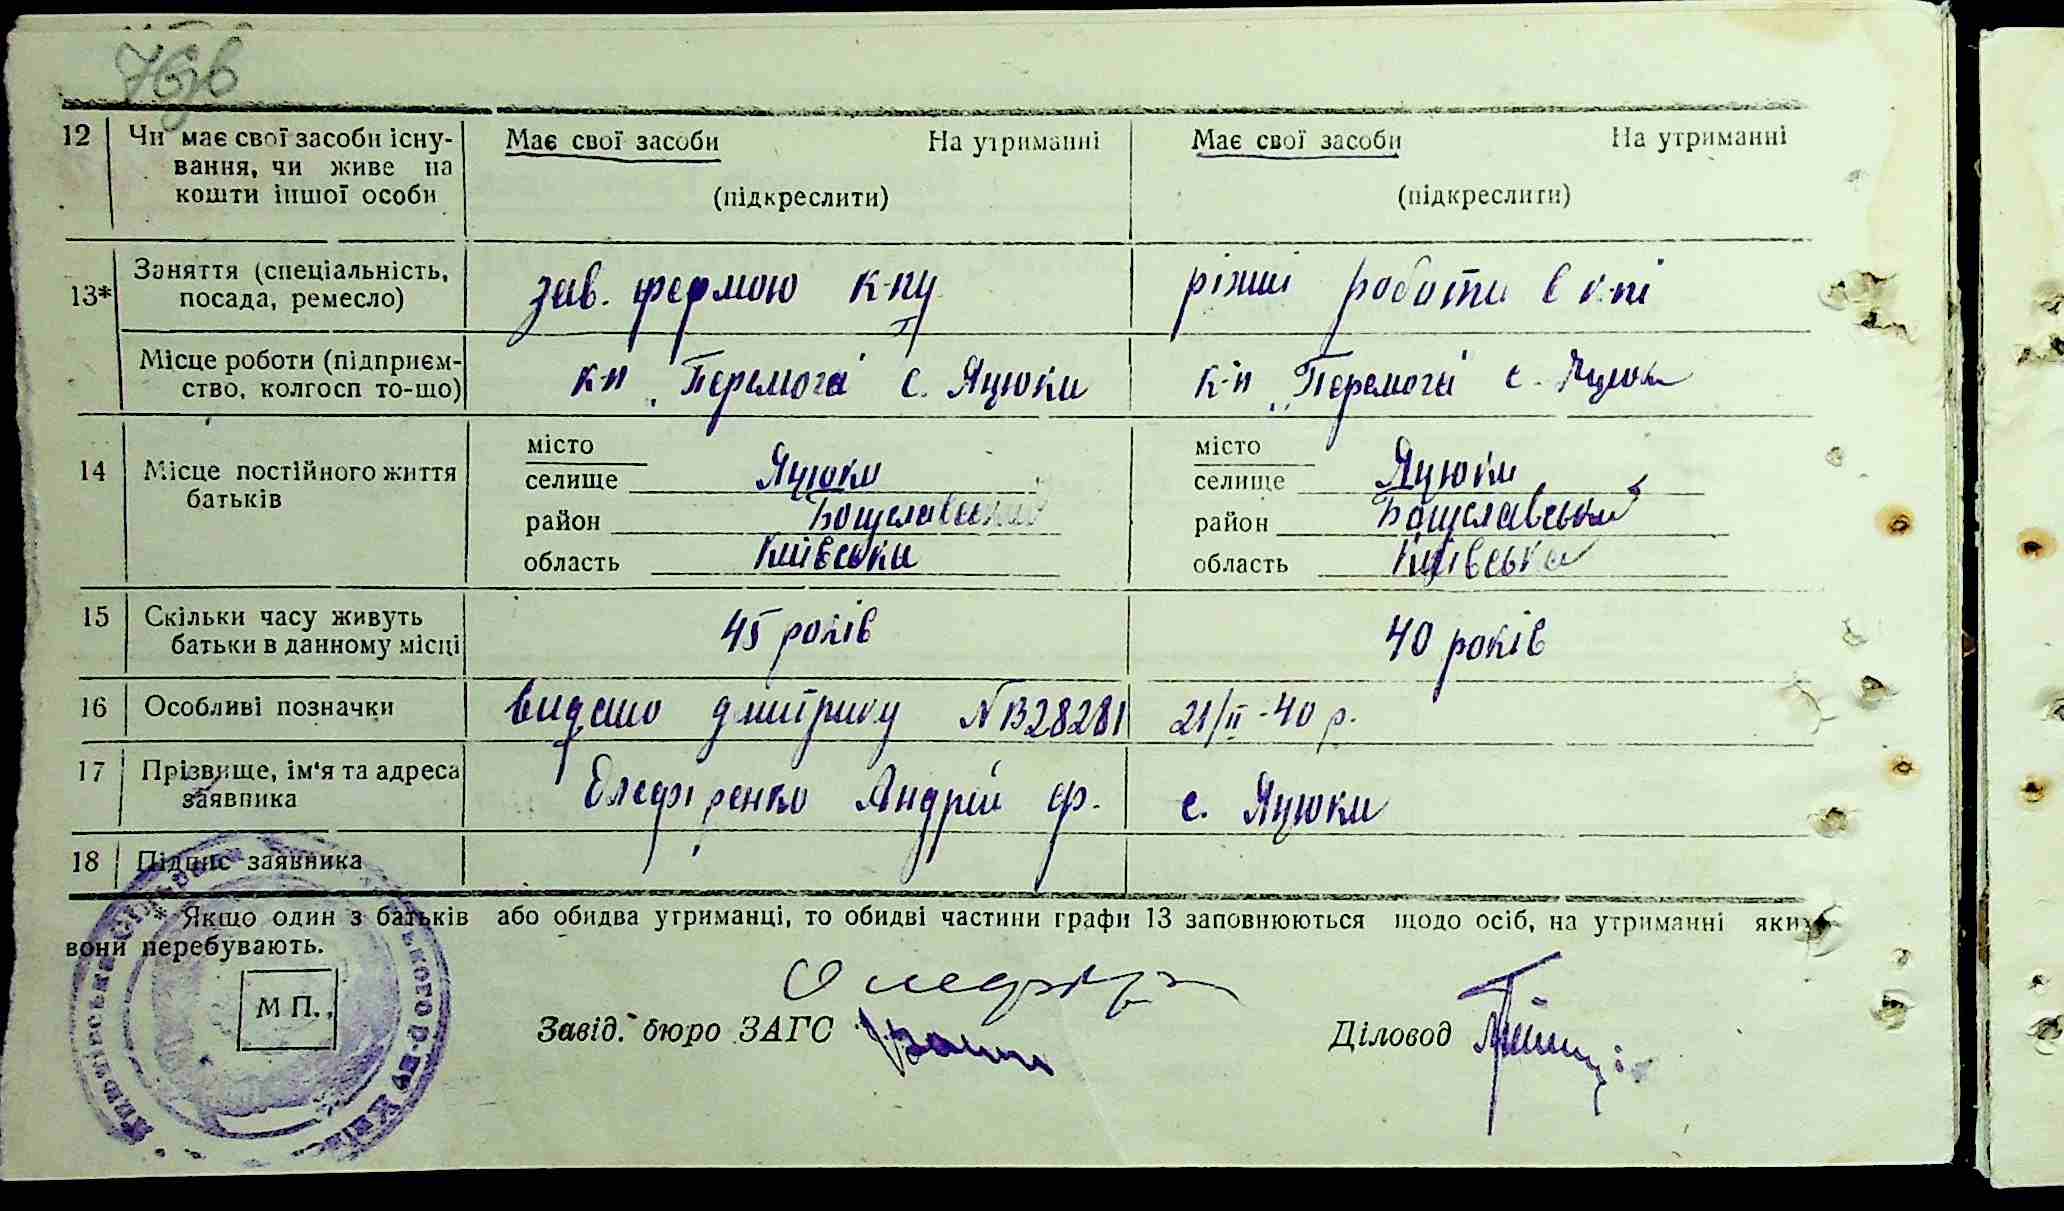 76зв
12 Чи має свої засоби існу- Має свої засоби На утриманні Має свої засоби На утриманні
вання, чи живе на
кошти іншої особи (підкреслити) (підкреслити)
13* Заняття (спеціальність,
посада, ремесло) зав. фермою к-пу ріжні роботи в к-пі
Місце роботи (підприєм-
ство, колгосп то-що) к-п „Перемога" с. Яцюки к-п „Перемога" с. Яцюки
14 Місце постійного життя
батьків
місто місто
селище Яцюки селище Яцюки
район Богуславський район Богуславський
область Київська область Київська
15 Скільки часу живуть
батьки в данному місці 45 років 40 років
16 Особливі позначки видано дмитрику №В28281 21/II-40 р.
17 Прізвище, ім'я та адреса
заявника Олефіренко Андрій Ф. с. Яцюки
18 Підпис заявника
* Якщо один з батьків або обидва утриманці, то обидві частини графи 13 заповнюються щодо осіб, на утриманні яких
вони перебувають.
М П.
Завід. бюро ЗАГС Діловод